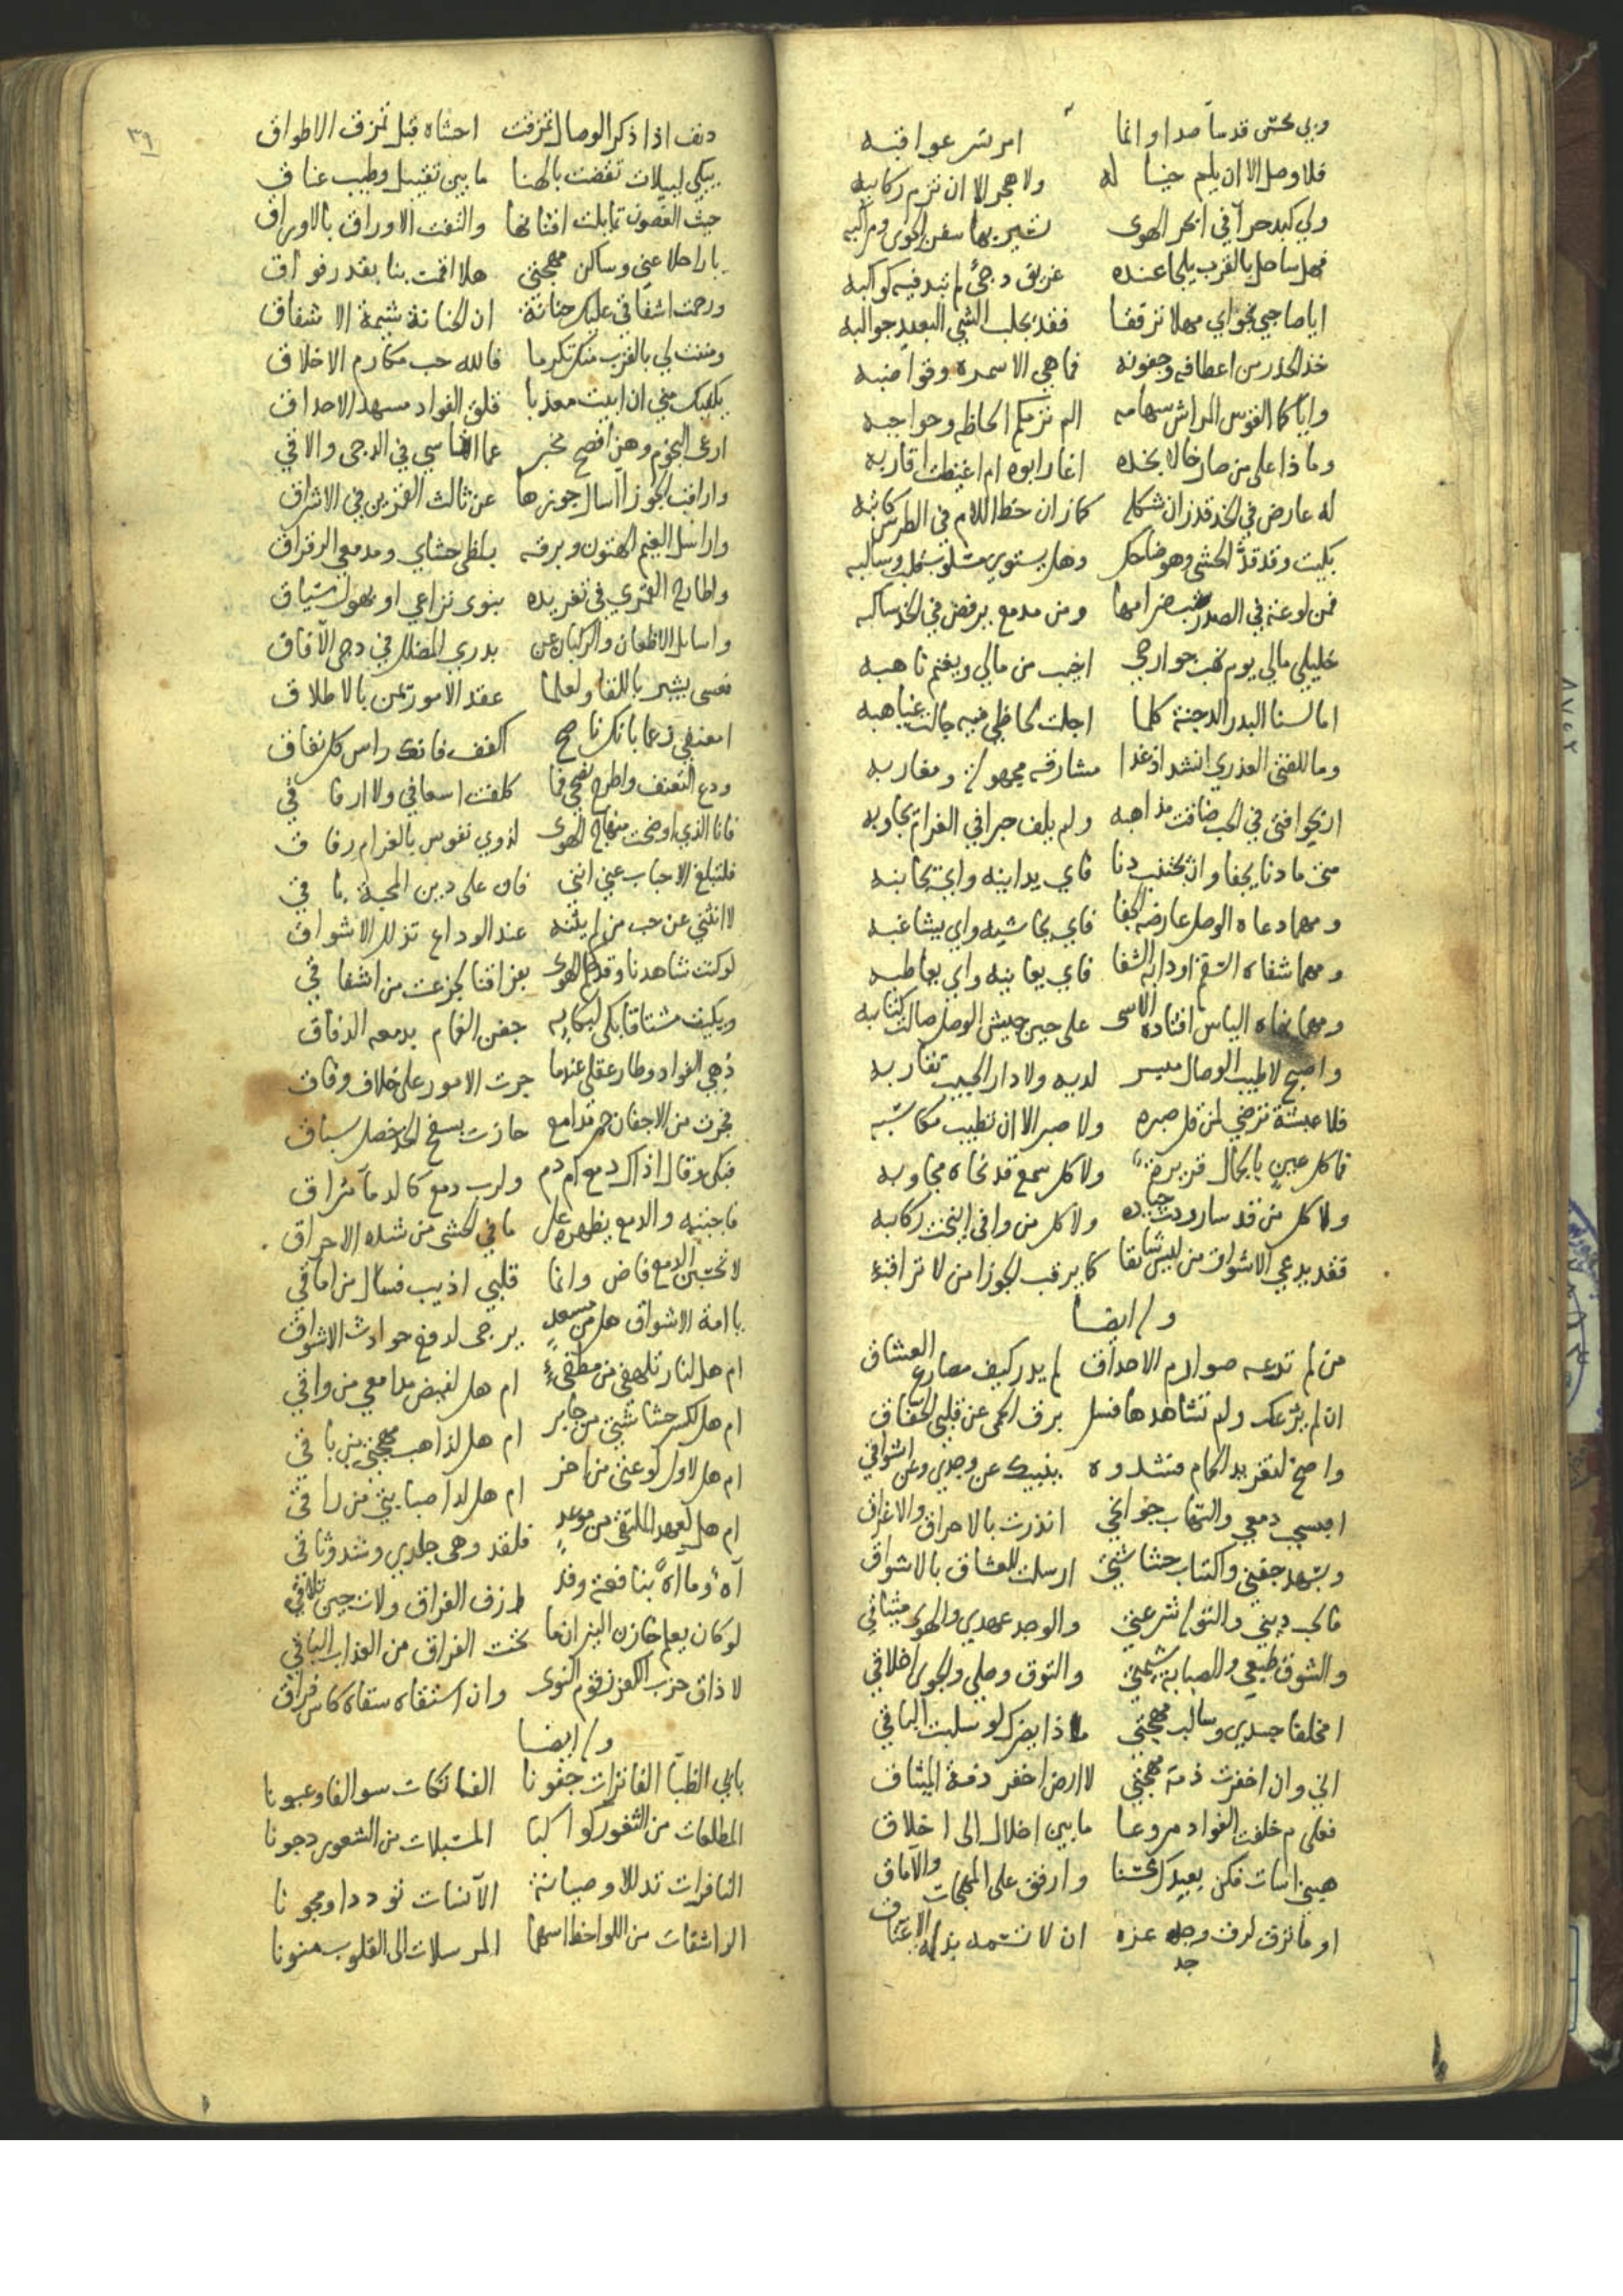 وبي محتش قد ساء صدا وانما امر تسر عواقبه
فلا وصل الا ان يلم خيا له ولا هجر الا ان تزم ركايبه
ولي كبد حرا في ابحر الهوى تسير بها سفن الجوى ومراكبه
فهل ساحل بالقرب يلجا عنده غريق دجى لم تبد فيه كواكبه
ايا صاحبي نجواي مهلا ترفقا فقد يجلب الشي البعيد جوالبه
خذا الحذر من اعطافه وجفونه فما هي الا سمره وقواضبه
واياكما القوس المراش سهامه الم ترميكم الحاظه وحواجبه
وماذا على من صار خالا بخده اغار ابوه ام اغيظت اقاربه
له عارض في الخد قد زان شكله كما زان خط اللام في الطرس كاتبه
بكيت وقد قد الحشى وهو ضاحك وهل يستوي مسلوب عقل وسالبه
فمن لوعة في الصدر ضرامها ومن مدمع يرفض في الخد ساكبه
خليلي مالي يوم نهب جوارحي اخيب من مالي ويغنم ناهبه
اما لسنا البدر الدجنة كلما اجلت لحاظي فيه جالت غياهبه
وما للفتى العذري انشد اذ غدا مشارقه مجهولة ومغاربه
اريحوا فتى في الحب ضاقت مذاهبه ولم يلف حبرا في الغرام تجاربه
متى ما دنا يجفا وان يجتنب دنا فاي يدانيه واي يجانبه
ومهما دعاه الوصل عارضه الجفا فاي يحاشيه واي يشاغبه
ومهما شفاه السقم اودى به الشفا فاي يعانيه واي يعاطبه
ومهما نهاه الياس اقتاده الاسى على حين جيش الوصل صالت كتايبه
واصبح لا طيب الوصال ميسر لديه ولا دار الحبيب تقاربه
فلا عيشة ترضي لمن قل صبره ولا صبر الا ان تطيب مكاسبه
فما كل عين بالجمال قريرة ولا كل سمع قد نحاه مجاوبه
ولا كل من قد سار ردت جياده ولا كل من وافى انيخت ركايبه
فقد يدعي الاشواق من ليس شايقا كما يرقب الجوزا من لا تراقبه
وله ايضا
من لم ترعه صوارم الاحداق لم يدر كيف مصارع العشاق
ان لم يرعك ولم تشاهدها فسل برق الحمى عن قلبي الخفاق
واصخ لتغريد الحمام فشدوه ينبيك عن وجدي وعن اشواقي
ابسيب دمعي والتهاب جوانحي انذرت بالاحراق والاغراق
وبسهد جفني واكتاب حشاشتي ارسلت للعشاق بالاشواق
فالحب ديني والتوله شرعتي والوجد عهدي والهوى ميثاقي
والشوق طبعي والصبابة شيمتي والتوق وصلي والجوى اخلاقي
امخلفا جسدي وسالب مهجتي ماذا يضرك لو سلبت الباقي
اني وان اخفرت ذمة مهجتي لا ارض اخفر ذمة الميثاق
فعلى م خلفت الفواد مروعا ما بين اخلال الى اخلاق
هبني اسات فكن بعيدك محسنا وارفق على المهجات والاماق
او ما ترق لرق وجد عزه ان لا تسمه بذلة الاعتاق
جد
٣٩
دنف اذا ذكر الوصال تمزقت احشاه قبل تمزق الاطواق
يبكي لييلات تقضت بالهنا ما بين تقبيل وطيب عناق
حيث الغصون تمايلت افنانها والتفت الاوراق بالاوراق
يا راحلا عني وساكن مهجتي هلا اقمت بنا بقدر فواق
ورحمت اشفاقي عليك حنانة ان الحنانة شيمة الاشفاق
ومننت لي بالقرب منك تكرما فالله حب مكارم الاخلاق
يكفيك مني ان ابيت معذبا قلق الفواد مسهد الاحداق
ارعى النجوم وهن افصح مخبر عما اقاسي في الدجى والاقي
واراقب الجوزا اسال جوزها عن ثالث القمرين في الاشراق
واراسل الغيم الهتون وبرقه بلظى حشاي ومدمعي الرقراق
واطارح القمري في تغريده بنوى نزاعي او بهول سياق
واسايل الاظعان والركبان عن بدري المضلل في دجى الآفاق
فعسى يشير باللقا ولعلما عقد الامور تمن بالاطلاق
امعنفي زعما بانك ناصح اكفف فانك راس كل نفاق
ودع التعنف واطرح نصحي فما كلفت اسعافي ولا ارفاقي
فانا الذي اوضحت منهاج الهوى لذوي نفوس بالغرام رقاق
فلتبلغ الاحباب عني انني فان على دين المحبة باقي
لا انثني عن حب من لم يثنه عند الوداع تذلل الاشواق
لو كنت شاهدنا وقد حم الهوى بفراقنا لجزعت من اشفاقي
وبكيت مشتاقا بكى لبكايه جفن الغمام بدمعه الدفاق
ذهي الفواد وطار عقلي عندما جرت الامور على خلاف وفاق
فجرت من الاجفان حمر مدامع حازت بسفح الخد خصل سباق
فبكى وقال اذاك دمع ام دم ولرب دمع كالدما مراق
فاجبته والدمع يظهره على ما في الحشى من شدة الاحراق
لا تحسبن الدمع فاض وانما قلبي اذيب فسال من اماقي
يا امة الاشواق هل من مسعد يرجى لدفع حوادث الاشواق
ام هل لنار تلهفي من مطفيء ام هل لفيض مدامعي من واقي
ام هل لكسر حشاشتي من جابر ام هل لذاهب مهجتي من باقي
ام هل لاول لوعتي من اخر ام هل لداء صبابتي من راقي
ام هل لعهد الملتقى من موعد فلقد وهى جلدي وشد وثاقي
آه وما آه بنافعة وقد ازف الفراق ولات حين تلاقي
لو كان يعلم خازن النيران ما تحت الفراق من العذاب الباقي
لا ذاق حزب الكفر زقوم النوى وان استقاه سقاه كاس فراق
وله ايضا
بابي الظبآ الفاترات جفونا الفاتكات سوالفا وعيونا
المطلعات من الثغور كواكبا المسبلات من الشعور دجونا
النافرات تدللا وصيانة الآنسات توددا ومجونا
الراشقات من اللواحظ اسهما المرسلات الى القلوب منونا